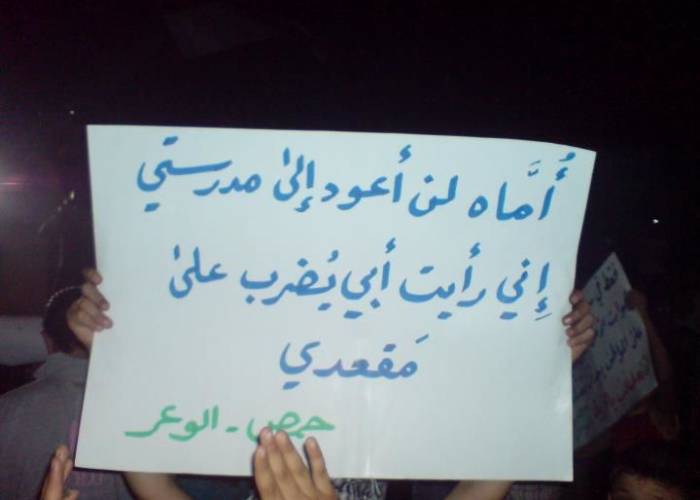 أُمَّاه لن أعود إلى مدرستي
إِني رأيت أبي يُضرب على
مَقعدي
حمص - الوعر